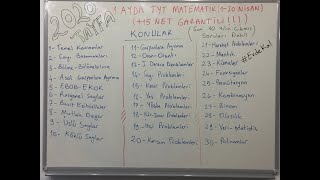 2020 TAYFA
1 AYDA TYT MATEMATİK (-30 NİSAN)
(+15 NET GARANTİLİ!!!)
KONULAR
(Son 10 Yılın Çıkmış Soruları Dahil)
#EvdeKal
1- Temel Kavramlar
2- Sayı Basamakları
3- Bölme-Bölünebilme
4- Asal Çarpanlara Ayırma
5- EBOB-EKOK
6- Rasyonel Sayılar
7- Basit Eşitsizlikler
8- Mutlak Değer
9- Üslü Sayılar
10- Köklü Sayılar
11- Çarpanlara Ayırma
12- Oran-Orantı
13- Denklem Problemleri
14- Sayı Problemleri
15- Kesir Problemleri
16- Yaş Problemleri
17- Yüzde Problemleri
18- Kar-Zarar Problemleri
19- Hız Problemleri
20- Karışım Problemleri
21- Hareket Problemleri
22- Mantık
23- Kümeler
24- Fonksiyonlar
25- Permütasyon
26- Kombinasyon
27- Binom
28- Olasılık
29- Veri-İstatistik
30- Polinomlar